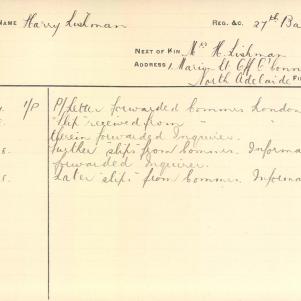 NAME Harry Lishman REG. &C. 27th Ba
NEXT OF KIN Mrs H. Lishman
ADDRESS 1 Marian St Off O'Conn
North Adelaide
1/P P/Letter forwarded Commrs London
"slip" received from " "
therein forwarded Inquirer.
Further "slips" from Commrs. Informa
forwarded Inquirer.
Later "slips" from Commrs. Informa